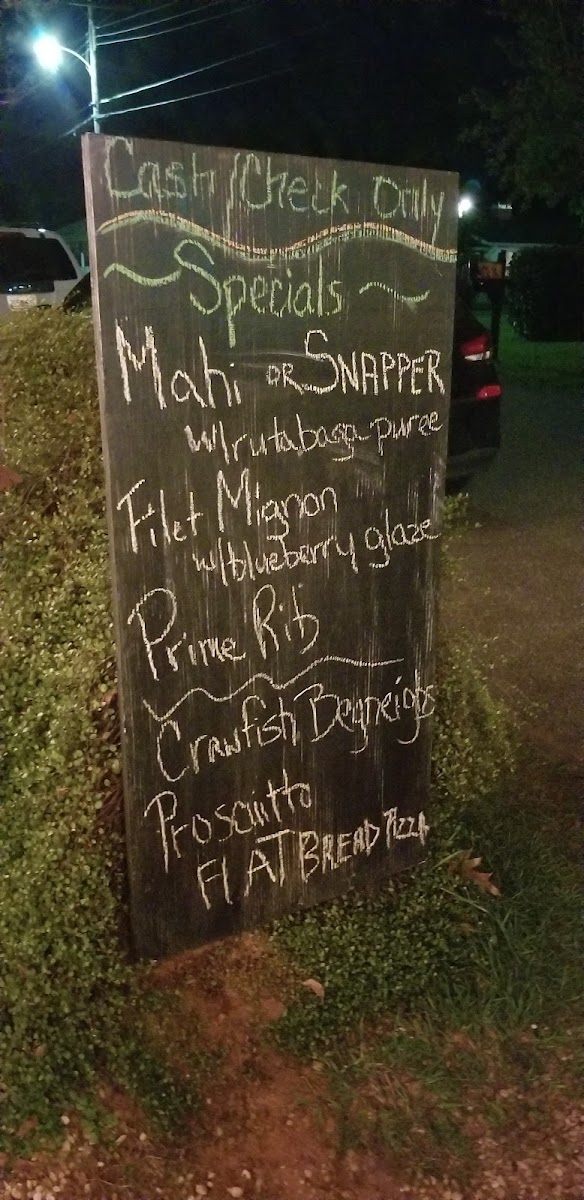 Cash/Check Only
~ Specials ~
Mahi OR SNAPPER
w/rutabaga puree
Filet Mignon
w/blueberry glaze
Prime Rib
Crawfish Begneights
Prosciutto
FlAT BREAD Pizza